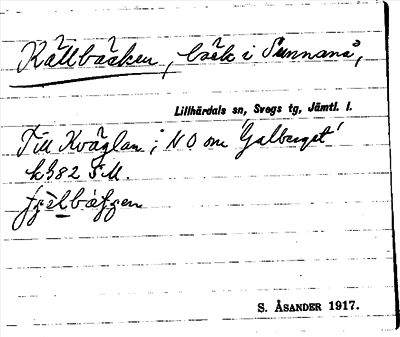 Källbäcken, bäck i Sunnanå,
Lillhärdals sn, Svegs tg, Jämtl. l.
Till Kväglan; NO om Galberget
k 982 S.M.
S. ÅSANDER 1917.